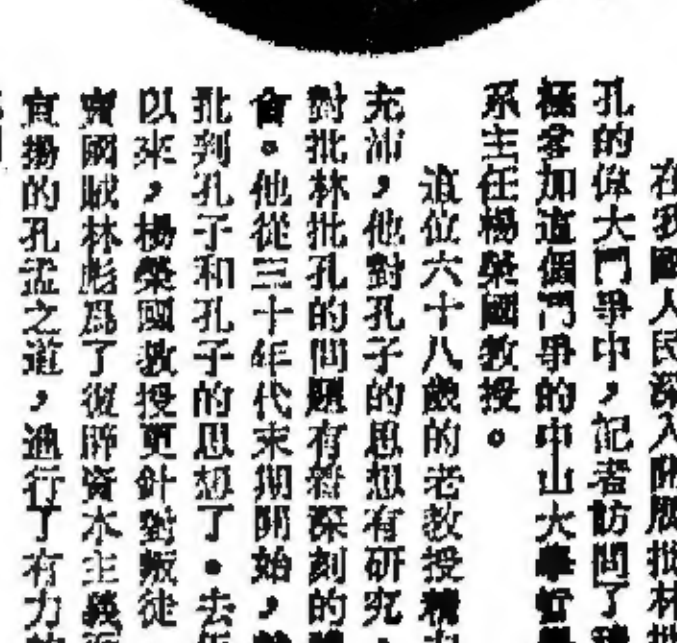 在我國人民深入開展批林批
孔的偉大鬥爭中，記者訪問了積
極參加這個鬥爭的中山大學哲
系主任楊榮國教授。
這位六十八歲的老教授精力
充沛，他對孔子的思想有研究，
對批林批孔的問題有着深刻的
會。他從三十年代末期開始，
批判孔子和孔子的思想了。去年
以來，楊榮國教授更針對叛徒
賣國賊林彪爲了復辟資本主義
宣揚的孔孟之道，進行了有力